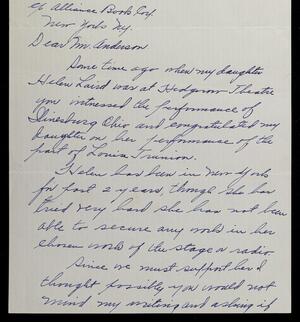 c/o Alliance Book Corp.
New York, Ny.
Dear Mr. Anderson
Some time ago when my daughter
Helen Laird was at Hedgerow Theatre
you witnessed the performance of
Winesburg Ohio and congratulated my
daughter on her performance of the
part of Louise Trunion.
Helen has been in New York
for past 2 years, though she has
tried very hard she has not been
able to secure any work in her
chosen work of the stage or radio.
Since we must support her I
thought possibly you would not
mind my writing and asking if